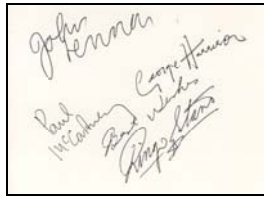 John
Lennon
George Harrison
Paul
McCartney
Best Wishes
Ringo Starr